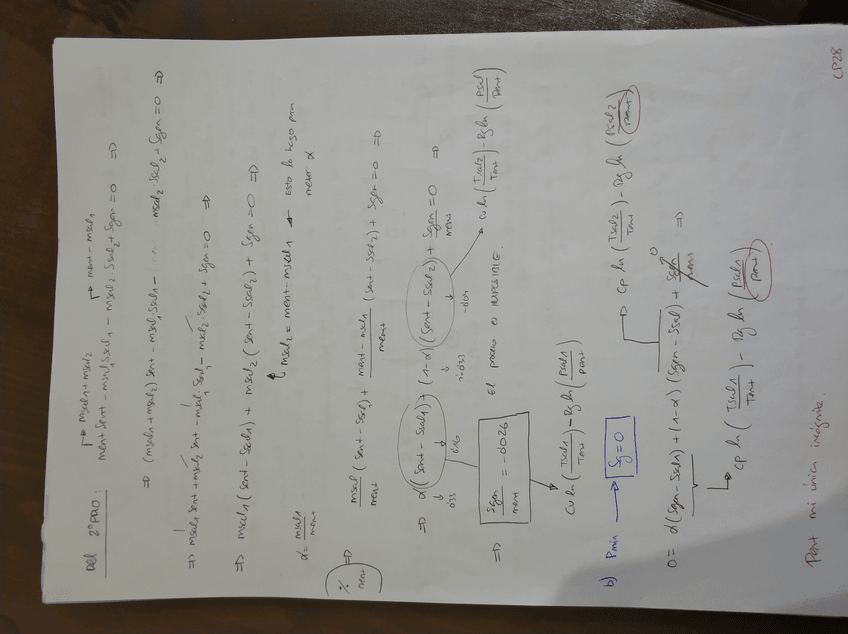 Del 2º PRO:
msal1 + msal2
ment - msal1
ment Sent - msal1 Ssal1 - msal2 Ssal2 + Sgen = 0 ⇒
⇒ (msal1 + msal2) Sent - msal1 Ssal1 - msal2 · Ssal2 + Sgen = 0 ⇒
⇒ msal1 Sent + msal2 Sent - msal1 Ssal1 - msal2 · Ssal2 + Sgen = 0 ⇒
⇒ msal1 (Sent - Ssal1) + msal2 (Sent - Ssal2) + Sgen = 0 ⇒
msal2 = ment - msal1 ← Esto lo hago para meter α
α = msal1/ment
% ment ⇒ msal1/ment (Sent - Ssal1) + ment - msal1/ment (Sent - Ssal2) + Sgen = 0 ⇒
⇒ α (Sent - Ssal1) + (1-α) (Sent - Ssal2) + Sgen/ment = 0 ⇒
0'33 0'16 1-0'33
Cv ln (Tsal2/Tent) - Rg ln (Psal2/Pent)
⇒ Sgen/ment = -0'026 El proceso es IMPOSIBLE.
Cv ln (Tsal1/Tent) - Rg ln (Psal1/Pent)
b) Pmin → Sg = 0
Cp ln (Tsal2/Tent) - Rg ln (Psal2/Pent)
0 = α (Sgen - Ssal1) + (1-α) (Sgen - Ssal) + Sgen/ment 0 ⇒
Cp ln (Tsal1/Tent) - Rg ln (Psal1/Pent)
Pent mi única incógnita.
CP28